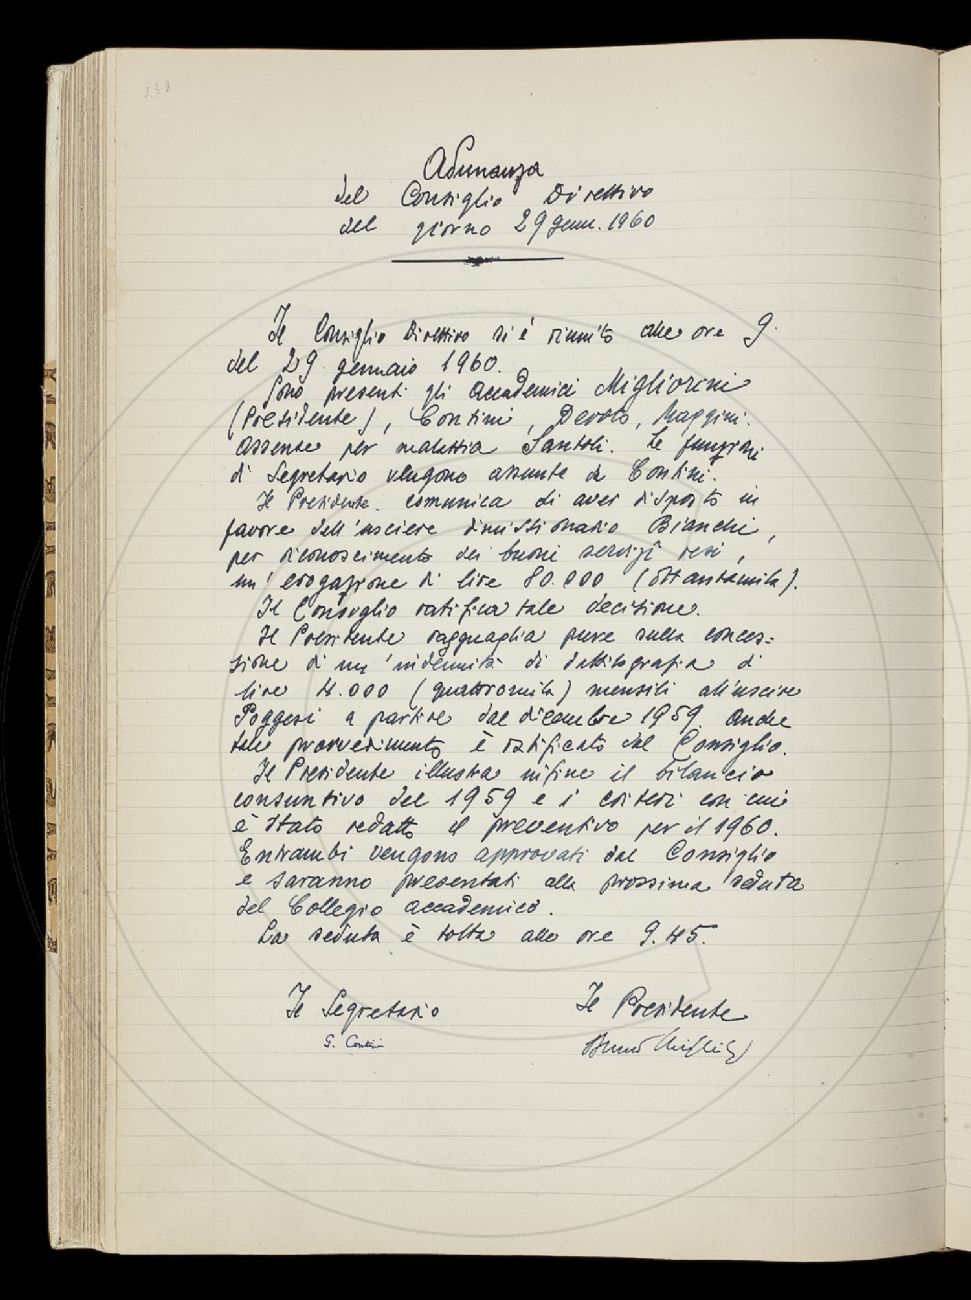 238
Adunanza
del Consiglio Direttivo
del giorno 29 genn. 1960
Il Consiglio Direttivo si è riunito alle ore 9
del 29 gennaio 1960.
Sono presenti gli Accademici Migliorini
(Presidente), Contini, Devoto, Maggini.
Assente per malattia Santoli. Le funzioni
di Segretario vengono assunte da Contini.
Il Presidente comunica di aver disposto in
favore dell'usciere dimissionario Bianchi,
per riconoscimento dei buoni servizî resi,
un'erogazione di lire 80.000 (ottantamila).
Il Consiglio ratifica tale decisione.
Il Presidente ragguaglia pure sulla conces=
sione di un'indennità di dattilografia di
lire 4.000 (quattromila) mensili all'usciere
Poggesi a partire dal dicembre 1959. Anche
tale provvedimento è ratificato dal Consiglio.
Il Presidente illustra infine il bilancio
consuntivo del 1959 e i criteri con cui
è stato redatto il preventivo per il 1960.
Entrambi vengono approvati dal Consiglio
e saranno presentati alla prossima seduta
del Collegio accademico.
La seduta è tolta alle ore 9.45.
Il Segretario Il Presidente
G. Contini Bruno Migliorini